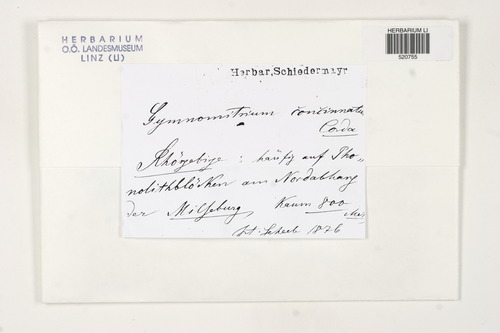 HERBARIUM
O.Ö. LANDESMUSEUM
LINZ (LI)
HERBARIUM LI
520755
Herbar, Schiedermayr
Gymnomitrium concinnatum
Corda
Rhöngebirge : häufig auf Pho-
nolithblöcken am Nordabhang
der Milseburg, kaum 800
1876